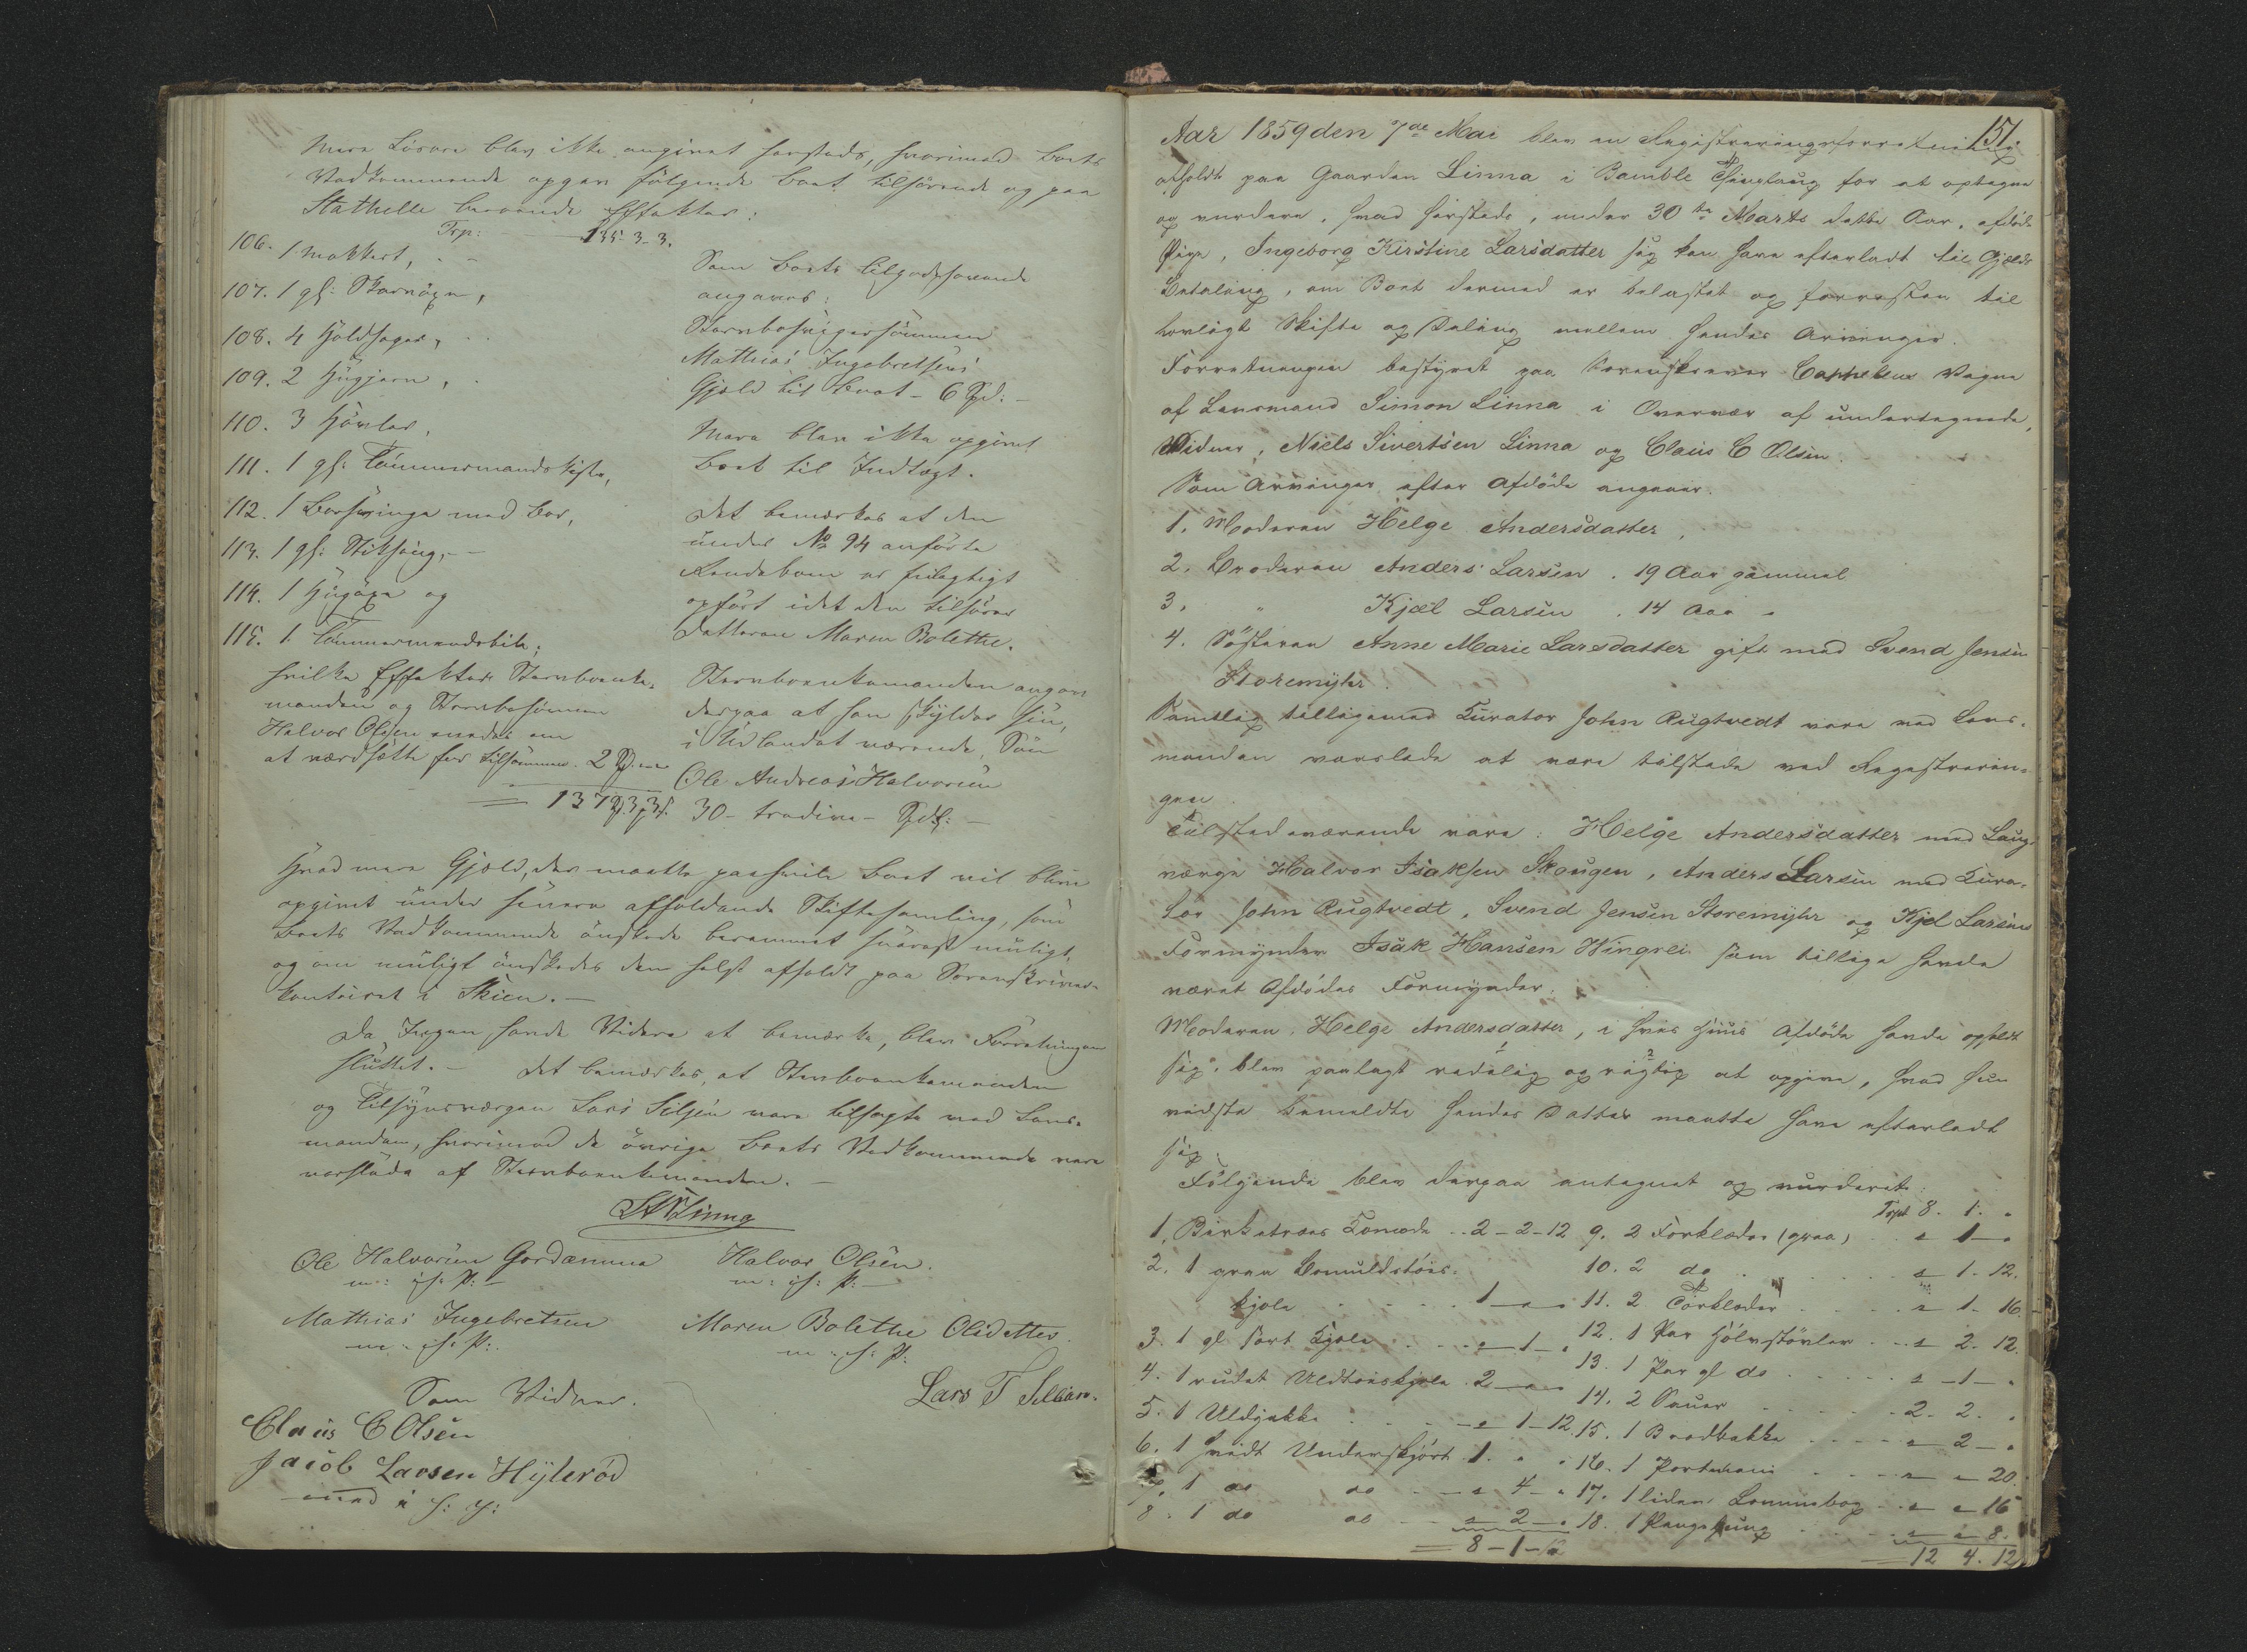 Mere Løsøre blev ikke angivet hersteds, hvorimod Boets
Vedkommende opgav følgende Boet tilhørende og paa
Stathelle beroende Effekter:
Trp: 135-3-3.
106. 1 Mokkert,
107. 1 gl: Skarøxe,
108. 4 Holdhager,
109. 2 Hugjern,
110. 3 Høvler,
111. 1 gl: Tømmermandskiste,
112. 1 Borsvinge med Bor,
113. 1 gl: Stiksaug,
114. 1 Hugøxe og
115. 1 Tømmermandsbile,
hvilke Effekter Stervboenke-
manden og Stervbosønnen
Halvor Olsen enedes om
at værdsætte for tilsammen 2 Spd.
= 137 Spd 3 3 s.
Som Boets tilgodehavende
angaves:
Stervbosvigersønnen
Mathias Ingebretsens
Gjeld til Boet - 6 Spd: -
Mere blev ikke opgivet
Boet til Indtægt.
Det bemærkes at den
under No 94 anførte
er feilagtigt
opført idet den tilhører
Datteren Maren Bolethe.
Stervboenkemanden angav
derpaa at han skylder sin,
i Udlandet værende, Søn
Ole Andreas Halvorsen
30 - tredive - Spdl: -
Hvad mere Gjeld, der maatte paahvile Boet vil blive
opgivet under senere afholdende Skiftesamling, som
Boets Vedkommende ønskede berammet snarest muligt,
og om muligt ønskedes den helst afholdt paa Sorenskriver-
kontoiret i Skien. -
Da Ingen havde Videre at bemærke, blev Forretningen
sluttet. - Det bemærkes, at Stervboenkemanden
og Tilsynsværgen Lars Siljen vare tilsagte ved Lens-
manden, hvorimod de øvrige Boets Vedkommende vare
varslede af Stervboenkemanden. -
S Linng
Ole Halvorsen Halvor Olsen.
m: i h: P: - m: i h: P: -
Mathias Ingebretsen Maren Bolethe Olsdatter.
m: i h: P: m: i h: P:
Som Vidner. Lars T
Claus C Olsen
Jacob Larsen Hyllerød
med i h: P:
151.
Aar 1859 den 7de Mai blev en Registreringsforretning
afholdt paa Gaarden Linna i Bamble Thinglaug for at optegne
og vurdere, hvad herstede, under 30te Marts dette Aar, afdøde
Pige, Ingeborg Kirstine Larsdatter sig kan have efterladt til Gjelds
Betaling, om Boet dermed er belastet og forresten til
lovligt Skifte og Deling mellem hendes Arvinger.
Forretningen bestyret paa Sorenskriver Cappelens Vegne
af Lensmand Simon Linna i Overvær af undertegnede
Vidner, Niels Sivertsen Linna og Claus C Olsen.
Som Arvinger efter Afdøde angaves.
1. Moderen Helge Andersdatter,
2. Broderen Anders Larsen. 19 Aar gammel
3. " Kjæl Larsen. 14 Aar "
4. Søsteren Anne Marie Larsdatter gift med Svend Jensen
Storemyhr.
Samtlig tilligemed Curator John Rugtvedt vare ved Lens-
manden varslede at være tilstede ved Registrerin-
gen.
Tilstedeværende vare: Helge Andersdatter med Laug-
værge Halvor Isaksen Skougen, Anders Larsen med Cura-
tor John Rugtvedt, Svend Jensen Storemyhr og Kjel Larsens
Formynder Isak Hansen Wingrei som tillige havde
været Afdødes Formynder.
Moderen Helge Andersdatter, i hvis Huus Afdøde havde opholdt
sig, blev paalagt redelig og rigtig at opgive, hvad hun
vidste bemeldte hendes Datter maatte have efterladt
sig.
Følgende blev derpaa antegnet og vurderet:
1. Birketræes Comode .. 2-2-12
2. 1 graa Bomuldstøis-
kjole 1 - " "
3. 1 gl sort Kjole " 1 - "
4. 1 rudet Uldtøiskjole 2 - " "
5. 1 Uldjakke " 1-12.
6. 1 hvidt Underskjørt 1. " "
7. 1 do do " 4 - "
8. 1 do do " 2 - "
= 8-1-12
Trpt 8. 1. "
9. 2 Forklæder (graa) " 1 - "
10. 2 do " 1. 12.
11. 2 Tørklæder " 1. 16
12. 1 Par Halvstøvler " 2. 12.
13. 1 Par gl do " 1 - "
14. 2 Sauer 2. 2. "
15. 1 Brødbakke " 2 - "
16. 1 Portemoni " " 20.
17. 1 liden Lommebog " " 16
18. 1 Pengepung " " 8.
= 12 4. 12